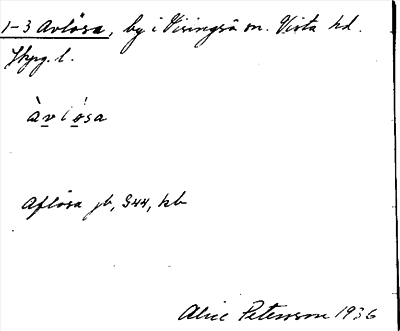 1-3 Avlösa, by i Visingsö sn. Vista hd.
Jkpg. l.
àvlósa
Aflösa jb, S44, kb
Alice Petersson 1936